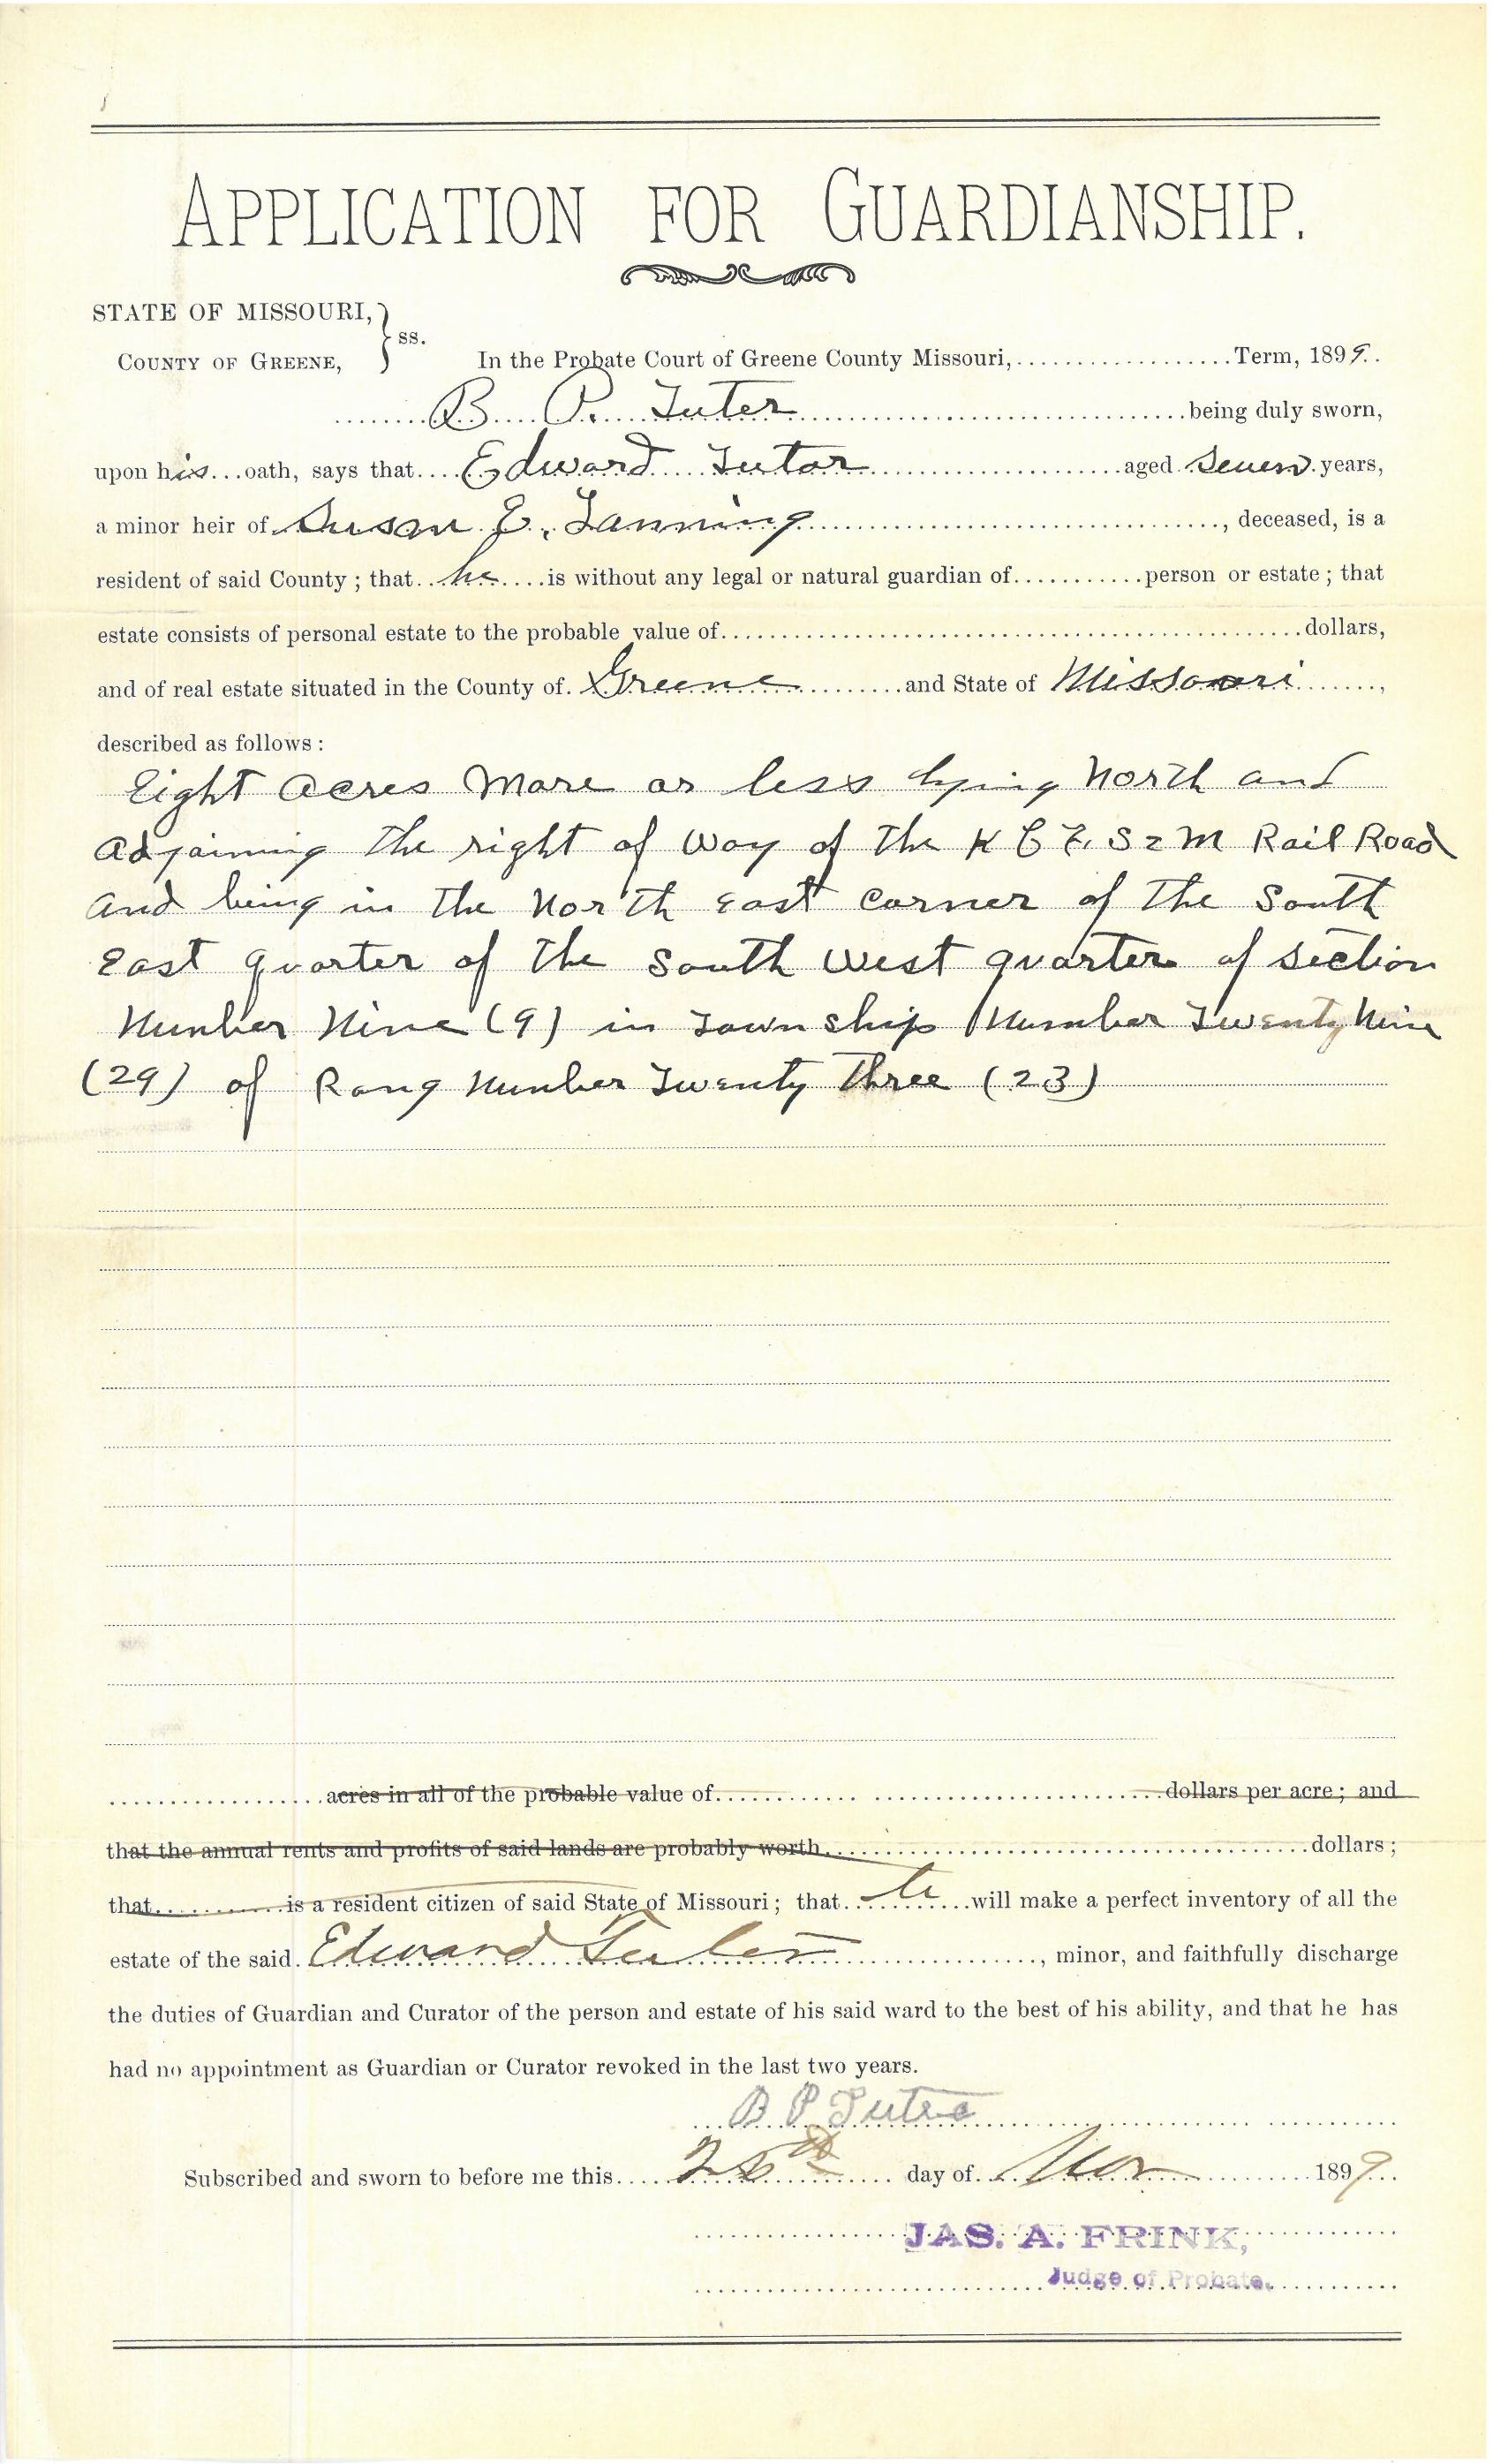 APPLICATION FOR GUARDIANSHIP.
STATE OF MISSOURI,
COUNTY OF GREENE, } ss. In the Probate Court of Greene County Missouri, Term, 1899.
B. P. Tuter being duly sworn,
upon his oath, says that Edward Tutor aged Seven years,
a minor heir of Susan E. Lanning, deceased, is a
resident of said County; that he is without any legal or natural guardian of person or estate; that
estate consists of personal estate to the probable value of dollars,
and of real estate situated in the County of Greene and State of Missouri,
described as follows:
Eight acres More or less lying North and
adjoining the right of Way of the K C F. S & M Rail Road
and being in the North East Corner of the South
East quarter of the South West quarter of Section
Number Nine (9) in Town Ship Number Twenty Nine
(29) of Rang Number Twenty Three (23)
acres in all of the probable value of dollars per acre; and
that the annual rents and profits of said lands are probably worth dollars;
that is a resident citizen of said State of Missouri; that he will make a perfect inventory of all the
estate of the said Edward Tuter, minor, and faithfully discharge
the duties of Guardian and Curator of the person and estate of his said ward to the best of his ability, and that he has
had no appointment as Guardian or Curator revoked in the last two years.
B P Tuter
Subscribed and sworn to before me this day of Nov 1899
JAS. A. FRINK,
Judge of Probate.